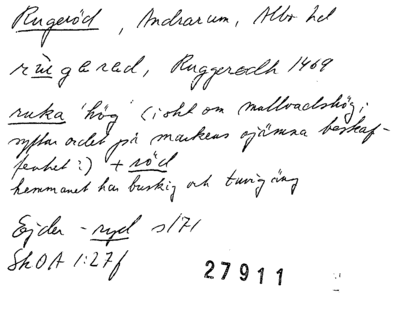 Rugeröd, Andrarum, Albo hd
rùgarad, Ruggerødh 1469
ruka 'hög' (i sht om mullvadshög;
syftar ordet på markens ojämna beskaf-
fenhet?) + röd
hemmanet har buskig och tuvig äng
Ejder - ryd s 171
SkOA 1:27f
27911